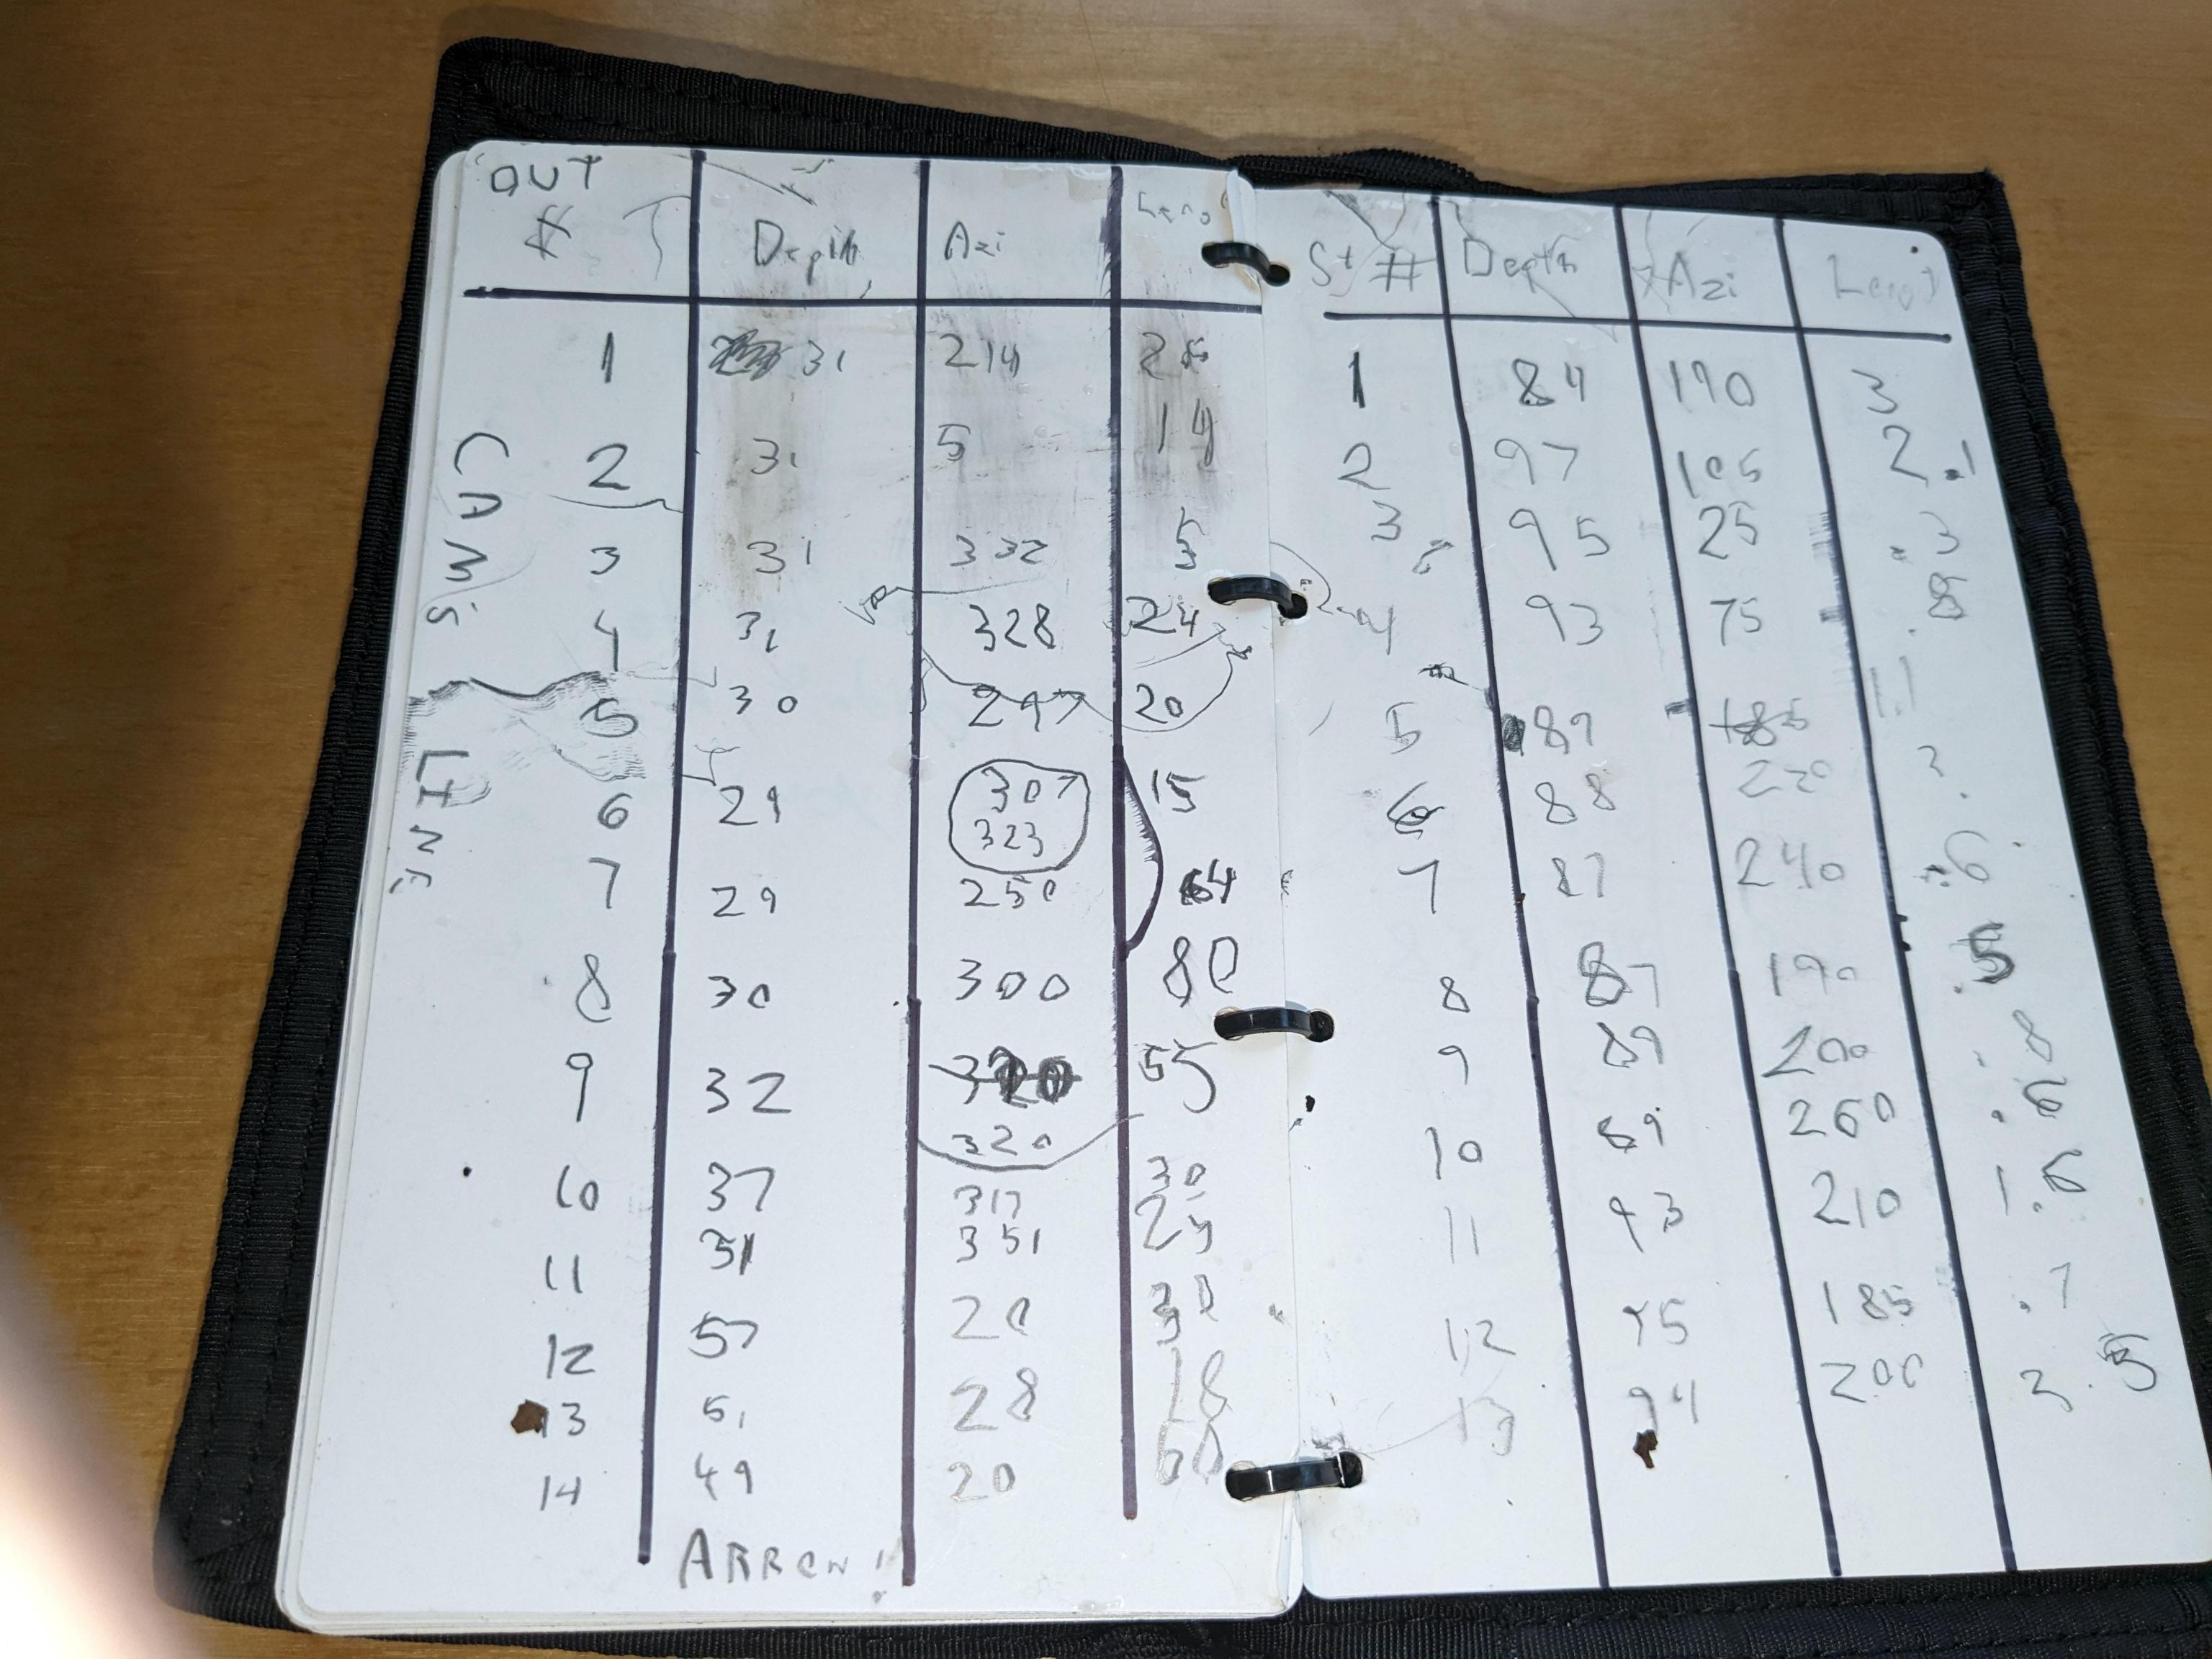 OUT
# Depth Azi
1 31 214
2 31 5 14
3 31 332 5
4 31 328 24
5 30 297 20
6 29 307 15
323
7 29 250 64
8 30 300 80
9 32 320 55
320
10 37 317 30
11 31 351 25
12 57 20 30
13 51 28 18
14 49 20 60
ARROW!
CAM'S LINE
St # Depth Azi Leng
1 84 190 3
2 97 105 2.1
3 95 25 .3
4 93 75 .8
5 89 185 1.1
6 88 220
7 87 240 .6
8 87 190 .5
9 89 200 .8
10 89 260 .6
11 93 210 1.6
12 95 185 .7
13 94 200 3.5